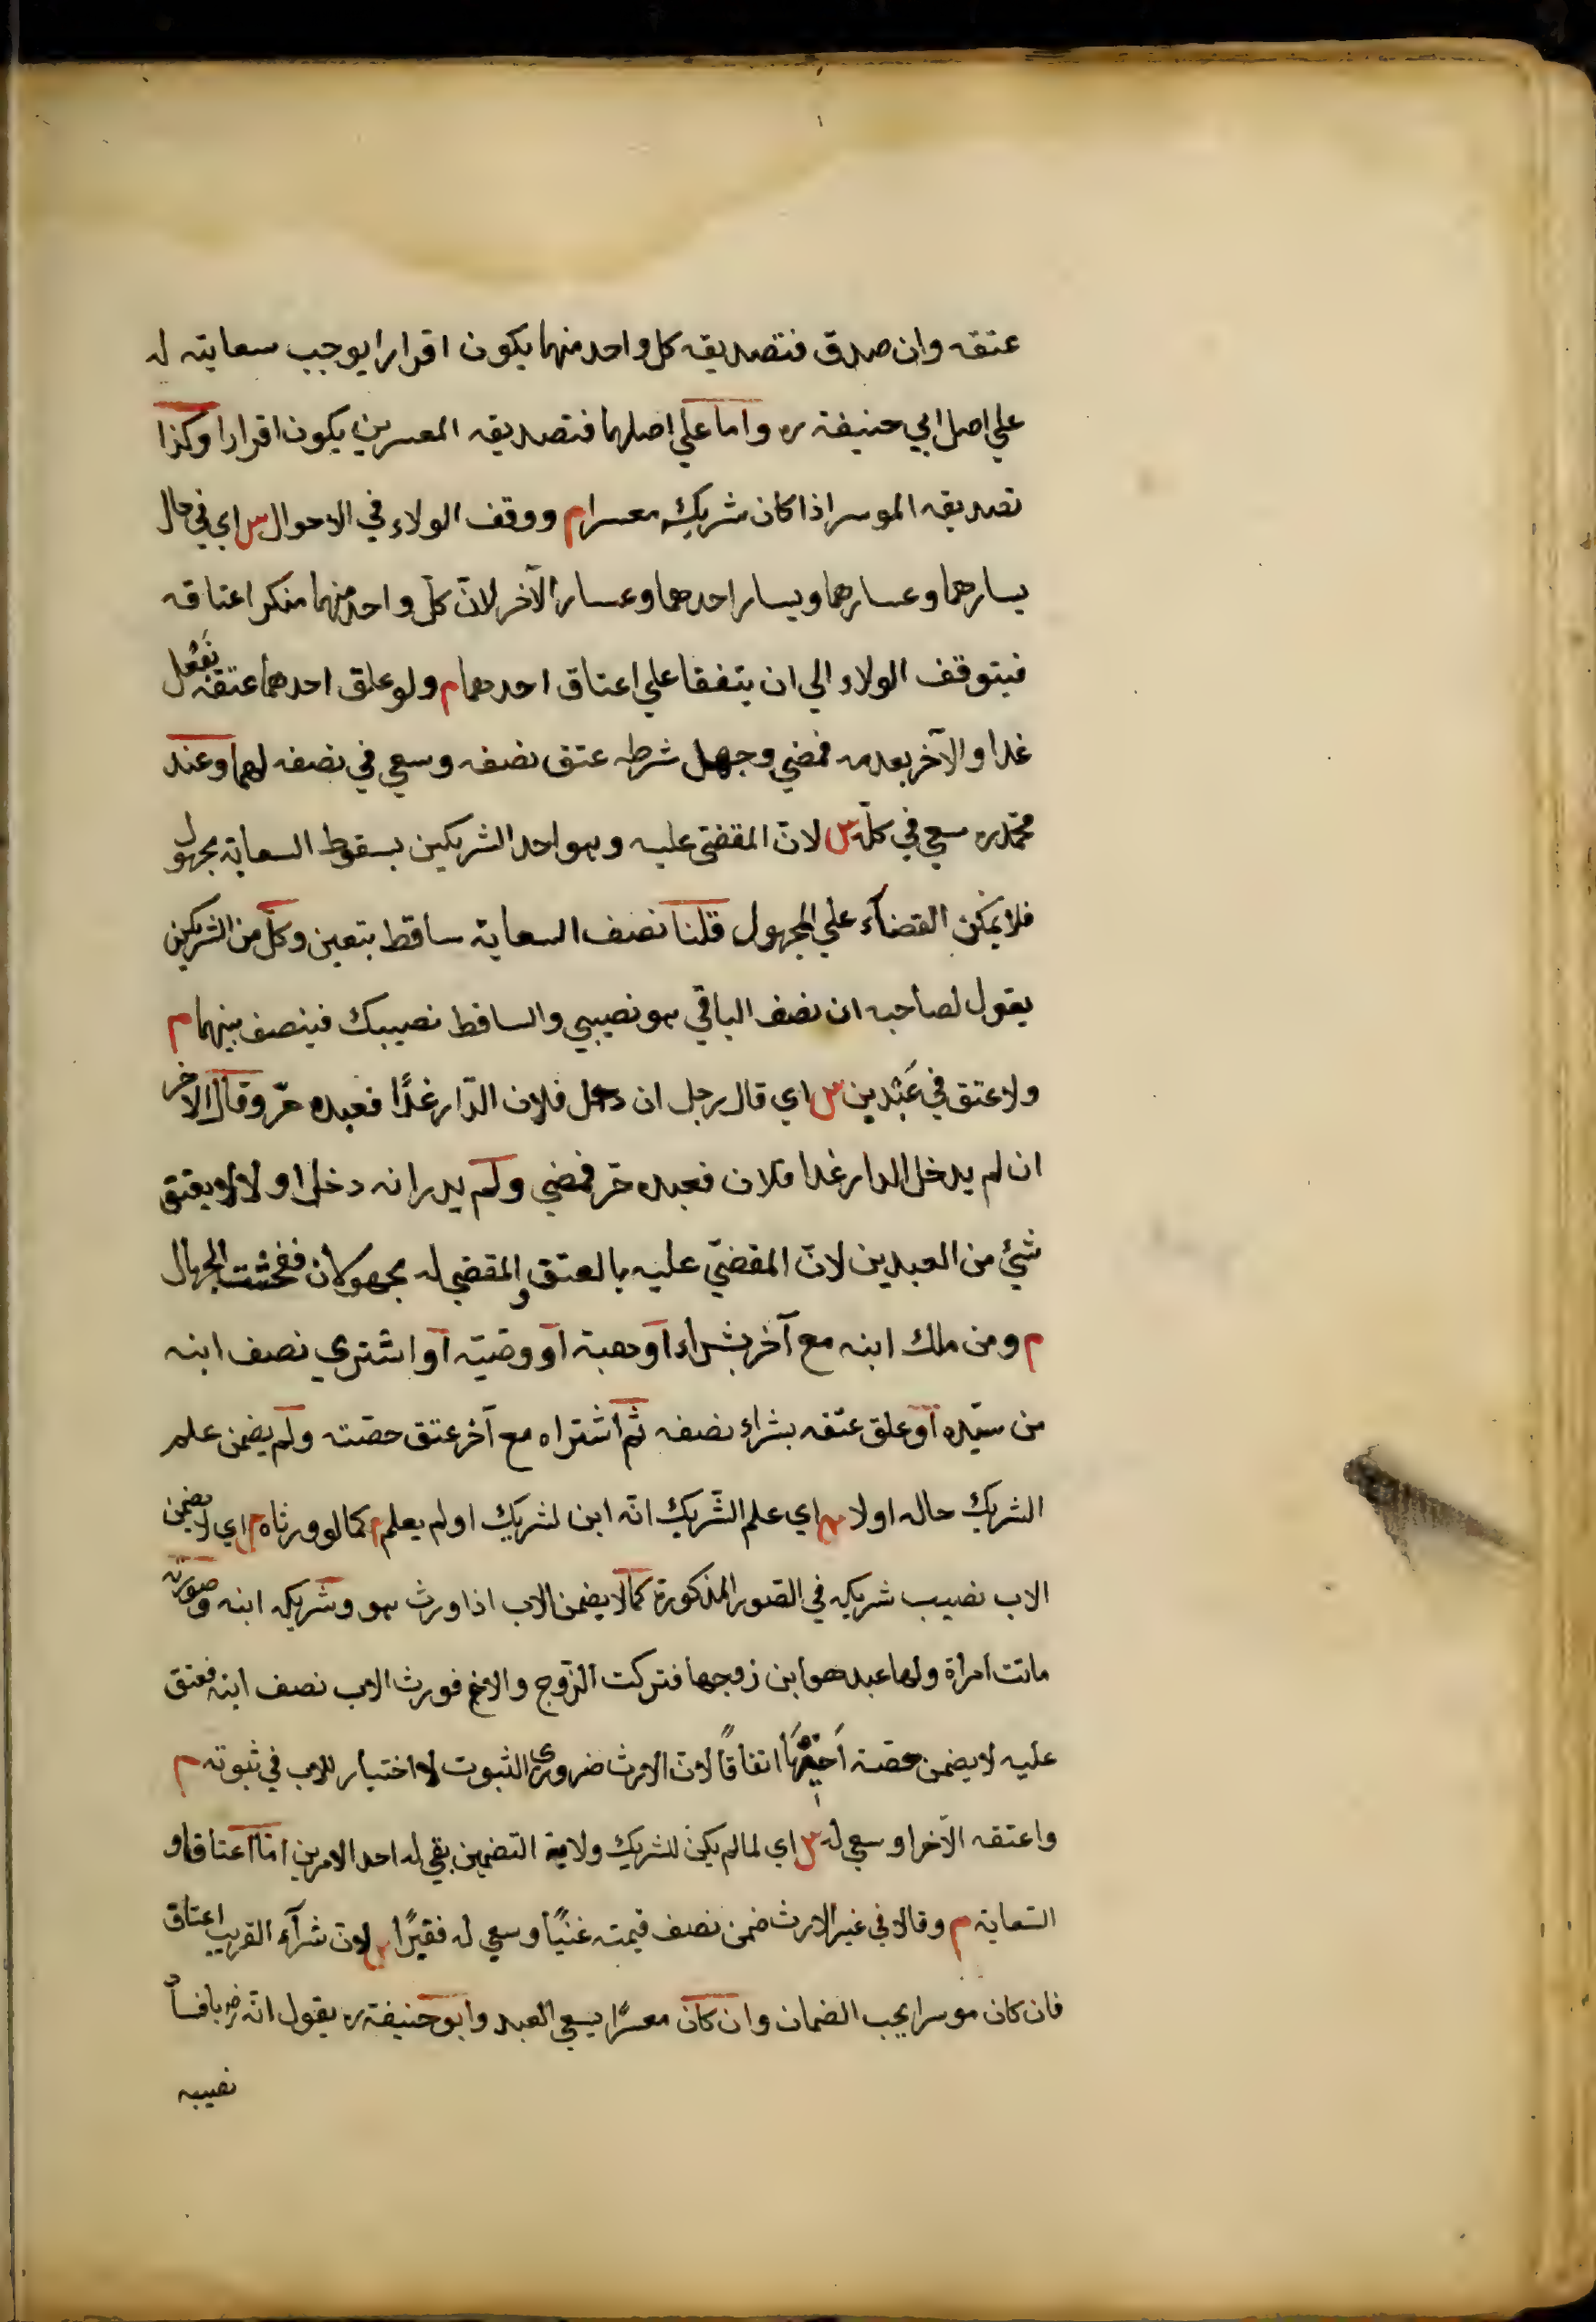 عتقه وان صدق فتصديقه كل واحد منهما يكون اقرارا يوجب سعايته له
علي اصل ابي حنيفة ره واما علي اصلهما فتصديقه المعسرين يكون اقرارا وكذا
تصديقه الموسر اذا كان شريكه معسرا م ووقف الولاء في الاحوال س اي في حال
يسارهما وعسارهما ويسار احدهما وعسار الآخر لانّ كلّ واحد منهما منكر اعتاقه
فيتوقف الولاء الي ان يتفقا علي اعتاق احدهما م ولو علق احدهما عتقه بفعل
غدا والآخر بعدمه فمضي وجهل شرطه عتق نصفه وسعي في نصفه لهما وعند
محمّد ره سعي في كلّه س لانّ المقضيّ عليه وهو احد الشريكين بسقوط السعاية مجهول
فلا يمكن القضآء علي المجهول قلنا نصف السعاية ساقط بتعين وكلّ من الشريكين
يقول لصاحبه ان نصف الباقي هو نصيبي والساقط نصيبك فينصف بينهما م
ولا عتق في عَبْدين س اي قال رجل ان دخل فلان الدّار غدًا فعبده حرّ وقال الآخر
ان لم يدخل الدار غدا فلان فعبده حرّ فمضي ولم يدر انه دخل او لا لا يعتق
شيئ من العبدين لانّ المقضيّ عليه بالعتق والمقضي له مجهولان ففحشت الجهال
م ومن ملك ابنه مع آخر بشراء او هبة او وصيّة او اشتري نصف ابنه
من سيّده او علق عتقه بشراء نصفه ثم اشتراه مع آخر عتق حصّته ولم يضمن علم
الشريك حاله اولا س اي علم الشّريك انّه ابن لشريك او لم يعلم م كما لو ورثاه س اي لا يضمن
الاب نصيب شريكه في الصّور المذكورة كما لا يضمن الاب اذا ورث هو وشريكه ابنه وصورته
ماتت امراة ولها عبد هو ابن زوجها فتركت الزّوج والاخ فورث الاب نصف ابنه فعتق
عليه لا يضمن حصّة اخيها اتفاقًا لانّ الارث ضروري الثبوت لا اختيار للاب في ثبوته م
واعتقه الآخر او سعي له س اي لما لم يكن للشريك ولاية التضمين بقي له احد الامرين امّا اعتاق او
السّعاية م وقالا في غير الارث ضمن نصف قيمته غنيًّا وسعي له فقيرًا س لانّ شرآء القريب اعتاق
فان كان موسرا يجب الضمان وان كان معسرًا يسعي العبد وابو حنيفة ره يقول انّه رضي بافساد
نصيبه